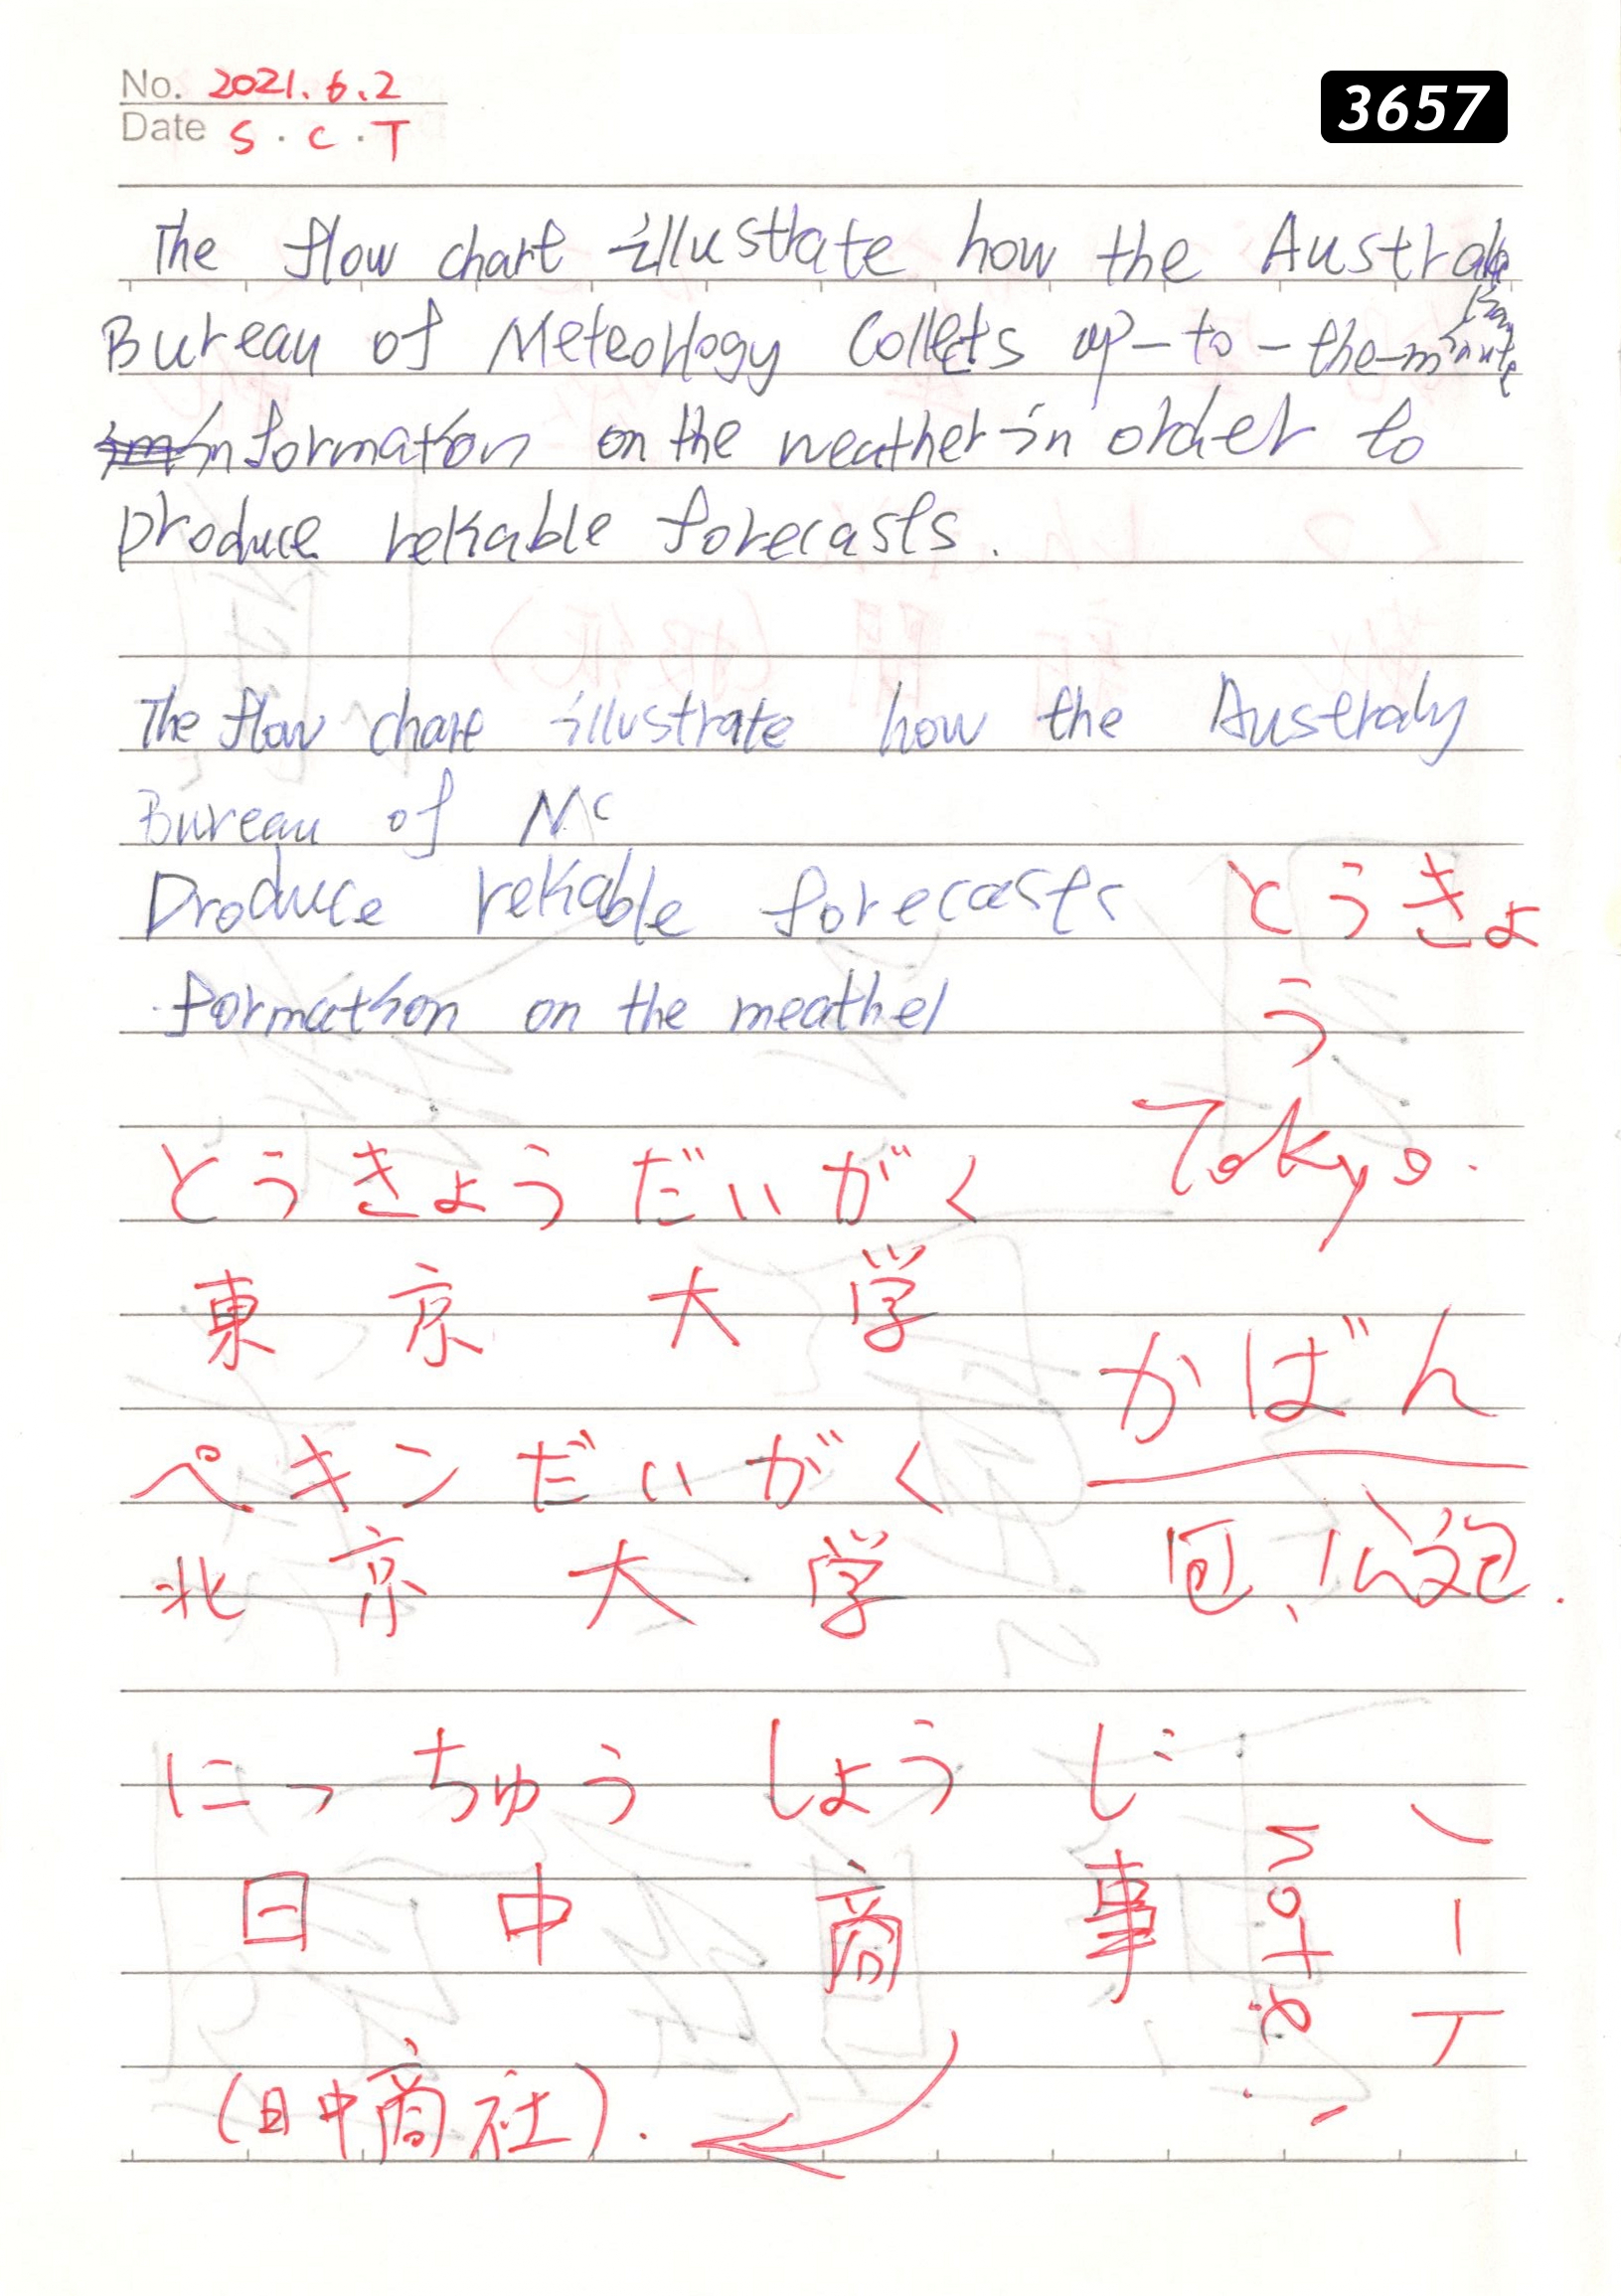 No. 2021.6.2
3657
Date S.C.T
The flow chart illustrate how the Australian
Bureau of Meteorlogy Collects up-to-the-minute
information on the weather in order to
produce rekable forecasts.
The flow chart illustrate how the Australy
Bureau of Mc
Produce rekable forecasts
formation on the meathel
とうきょ
う
Tokyo.
とうきょうだいがく
東京大学
かばん
ペキンだいがく
北京大学
包、公文包.
にっちゅうしょうじ
日中商事
ノート
note
(日中商社).